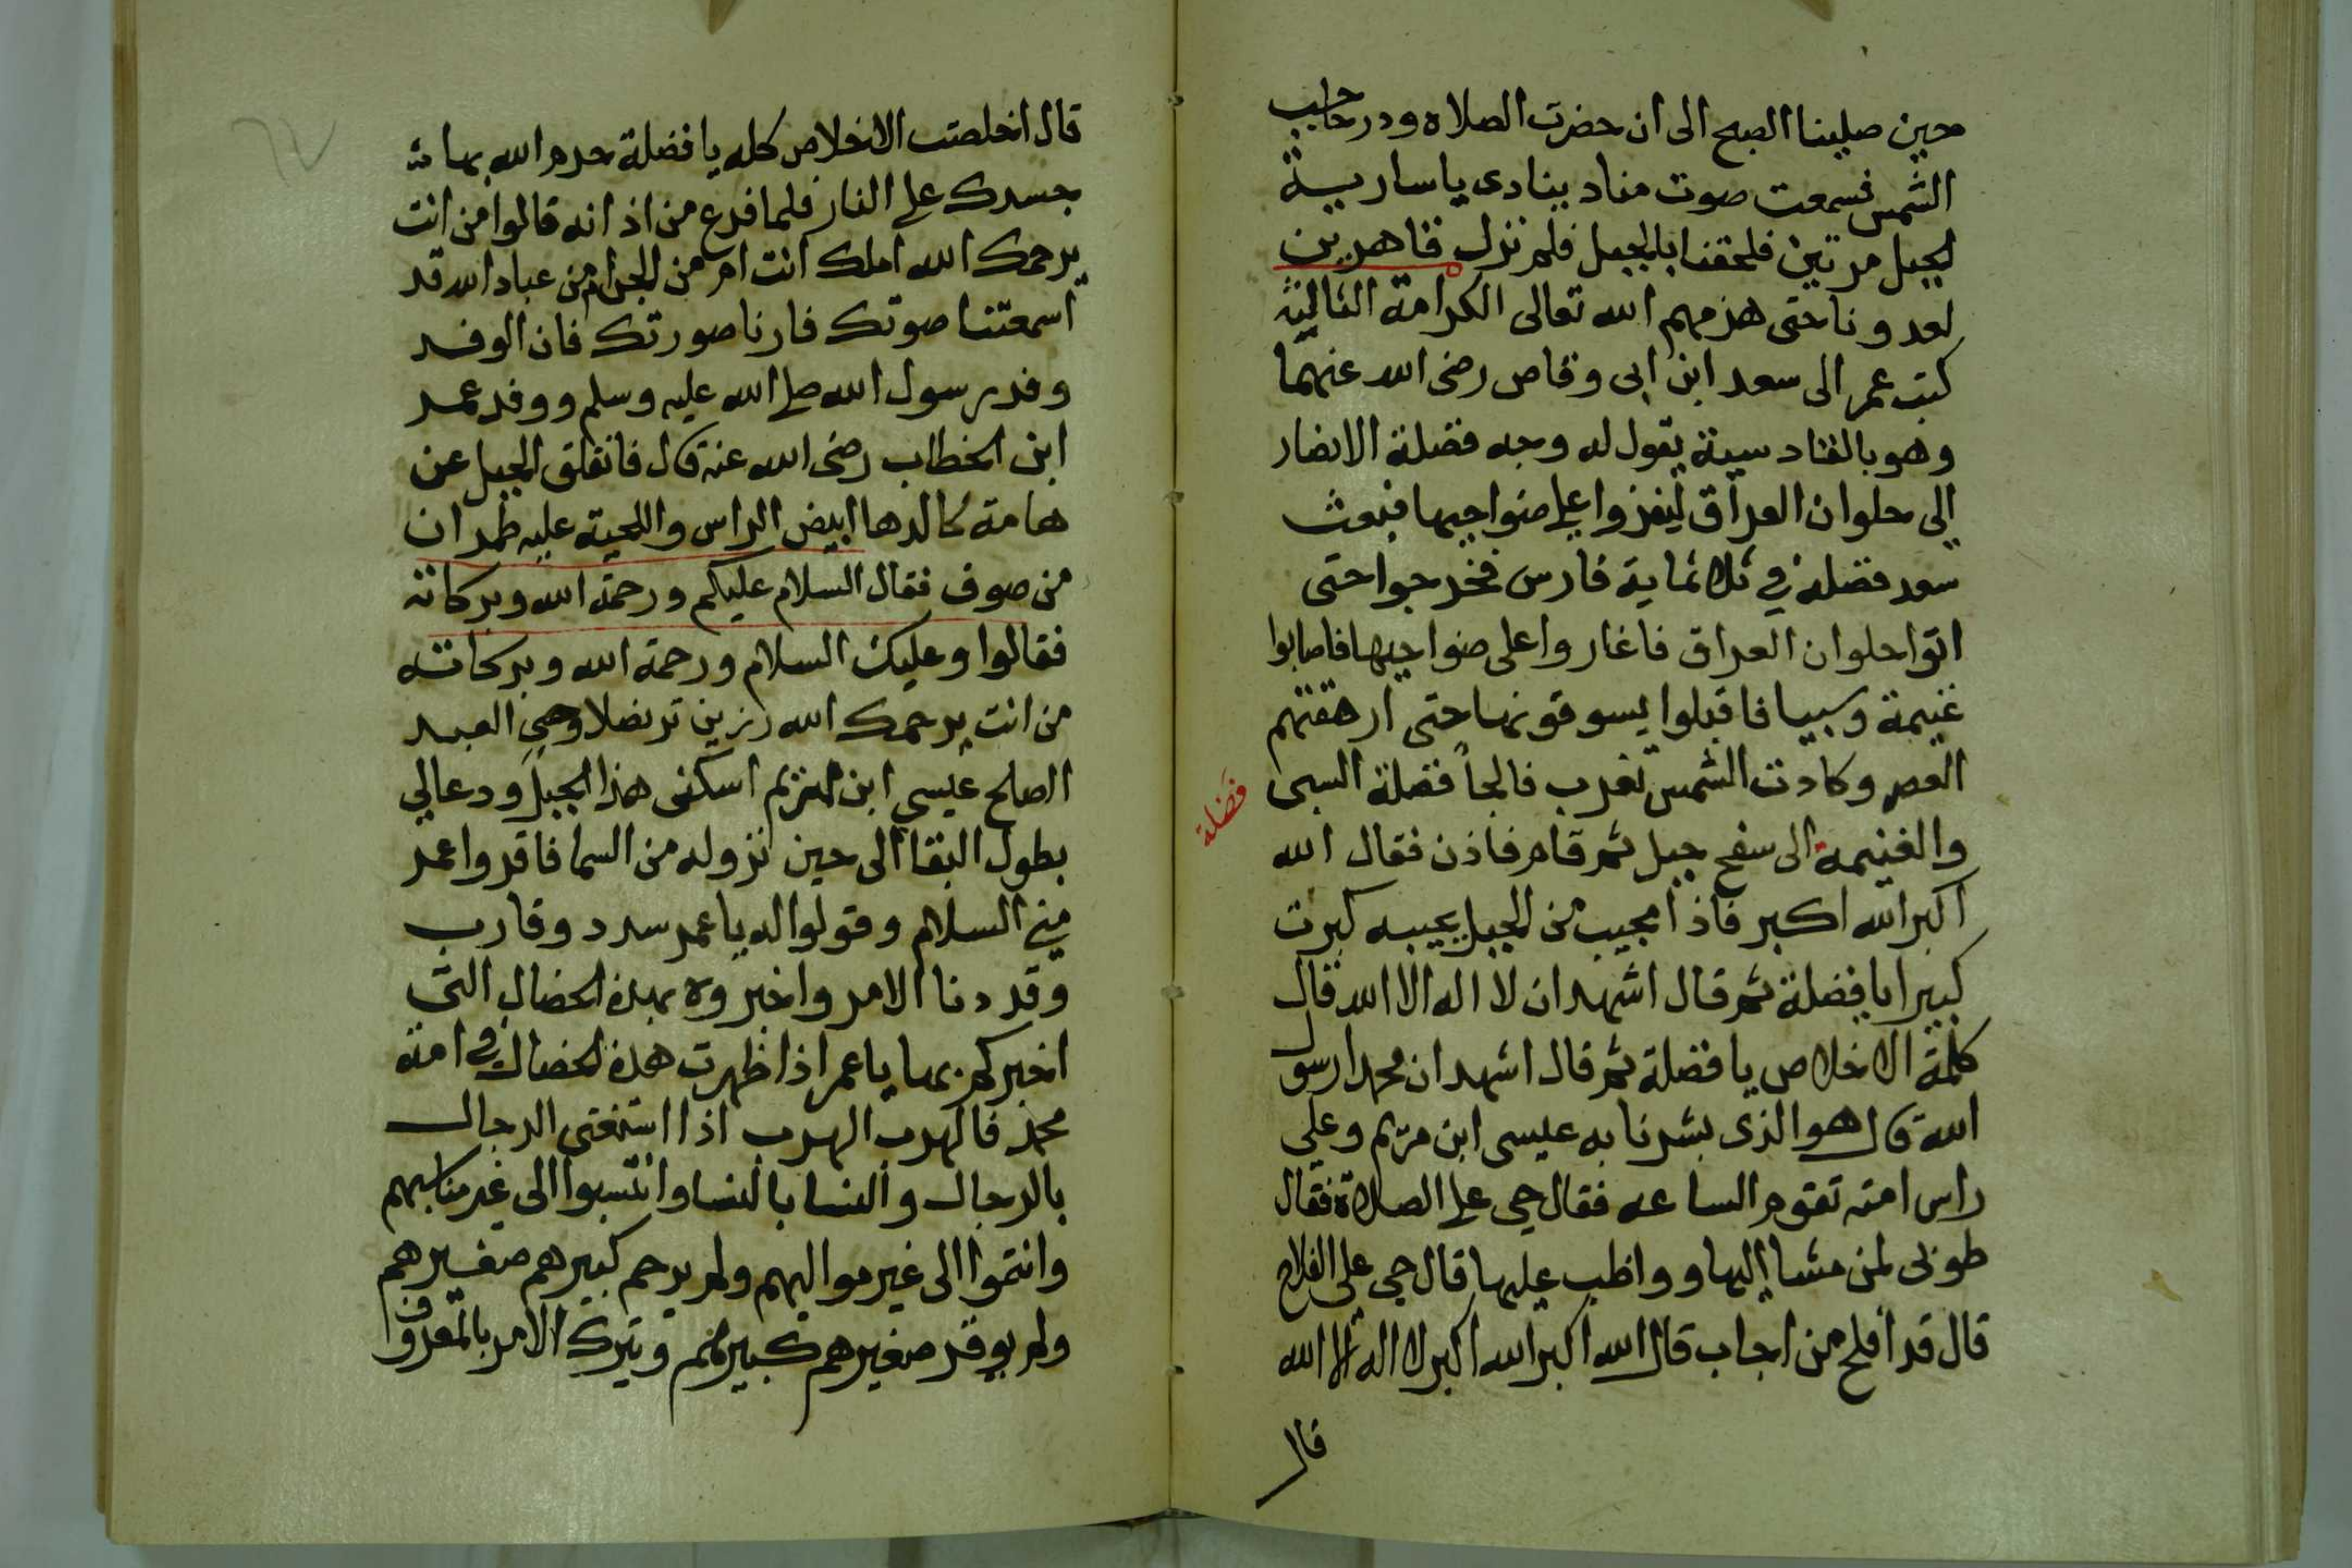 حين صلينا الصبح الى ان حضرت الصلاة ودر حاجب
الشمس فسمعت صوت مناد ينادى يا سارية
الجبل مرتين فلحقنا بالجبل فلم نزل قاهرين
لعدونا حتى هزمهم الله تعالى الكرامة الثالثة
كتب عمر الى سعد ابن ابى وقاص رضى الله عنهما
وهو بالقادسية يقول له وجه فضلة الانصار
الى حلوان العراق ليغزوا على ضواحيها فبعث
سعد فضلة في ثلاثماية فارس فخرجوا حتى
اتوا حلوان العراق فاغاروا على ضواحيها فاصابوا
غنيمة وسبيا فاقبلوا يسوقونها حتى ارهقتهم
العصر وكادت الشمس تغرب فالجأ فضلة السبى
فضلة
والغنيمة الى سفح جبل ثم قام فاذن فقال الله
اكبر الله اكبر فاذا مجيب من الجبل يجيبه كبرت
كبيرا يا فضلة ثم قال اشهد ان لا اله الا الله قال
كلمة الاخلاص يا فضلة ثم قال اشهد ان محمدا رسول
الله قال هو الذى بشرنا به عيسى ابن مريم وعلى
راس امته تقوم الساعه فقال حى على الصلاة فقال
طوبى لمن مشا اليها وواظب عليها قال حى على الفلاح
قال قد افلح من اجاب قال الله اكبر الله اكبر لا اله الا الله
قال
قال اخلصت الاخلاص كله يا فضلة حرم الله بها
جسدك على النار فلما فرع من اذانه قالوا من انت
يرحمك الله املك انت ام من الجن ام من عباد الله قد
اسمعتنا صوتك فارنا صورتك فان الوفد
وفد رسول الله صلى الله عليه وسلم ووفد عمر
ابن الخطاب رضى الله عنه قال فانفلق الجبل عن
هامة كالرها ابيض الراس واللحية عليه طمران
من صوف فقال السلام عليكم ورحمة الله وبركاته
فقالوا وعليك السلام ورحمة الله وبركاته
من انت يرحمك الله رزين تربضلا وصى العبد
الصلح عيسى ابن مريم اسكنى هذا الجبل ودعا لي
بطول البقا الى حين نزوله من السما فاقروا عمر
مني السلام وقولوا له يا عمر سدد وقارب
وقد دنا الامر واخبروه بهذه الخصال التى
اخبركم بها يا عمر اذا ظهرت هذه الخصال في امة
محمد فالهرب الهرب اذا استغنى الرجال
بالرجال والنسا بالنسا وانتسبوا الى غير مناسبهم
وانتموا الى غير مواليهم ولم يرحم كبيرهم صغيرهم
ولم يوقر صغيرهم كبيرهم وترك الامر بالمعروف